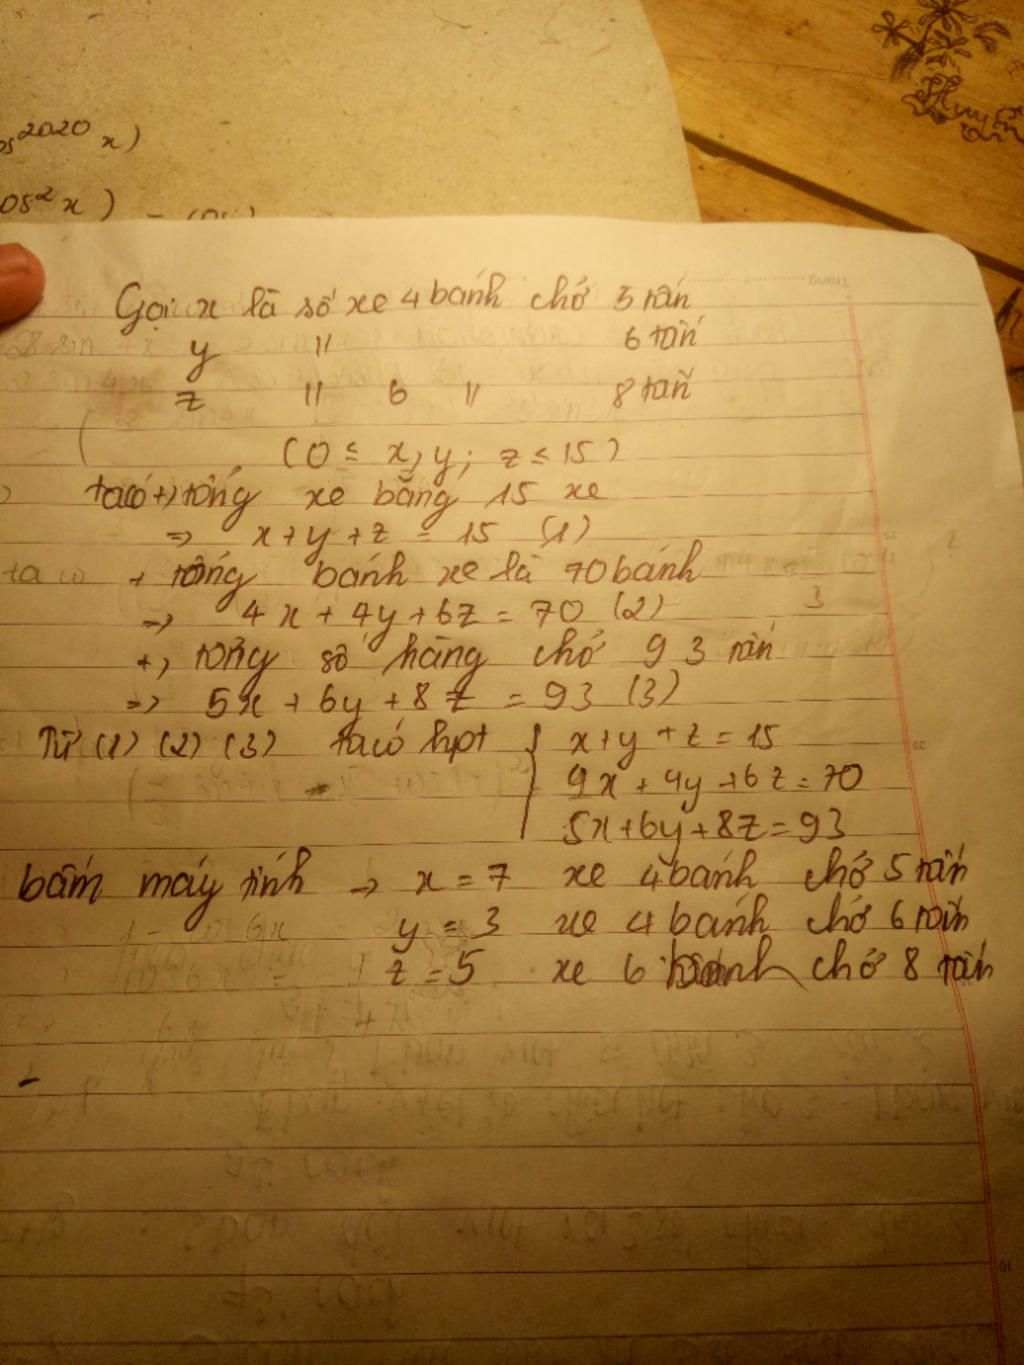 os²⁰²⁰ x)
os² x ) - (
Huyền
Gọi x là số xe 4 bánh chở 5 tấn
y " 6 tấn
z " 6 " 8 tấn
(0 ≤ x, y; z ≤ 15)
ta có +, tổng xe bằng 15 xe
=> x + y + z = 15 (1)
ta có + tổng bánh xe là 70 bánh
=> 4x + 4y + 6z = 70 (2)
+, tổng số hàng chở 93 tấn
=> 5x + 6y + 8z = 93 (3)
Từ (1) (2) (3) ta có hpt { x + y + z = 15
4x + 4y + 6z = 70
5x + 6y + 8z = 93
bấm máy tính → x = 7 xe 4 bánh chở 5 tấn
y = 3 xe 4 bánh chở 6 tấn
z = 5 xe 6 bánh chở 8 tấn